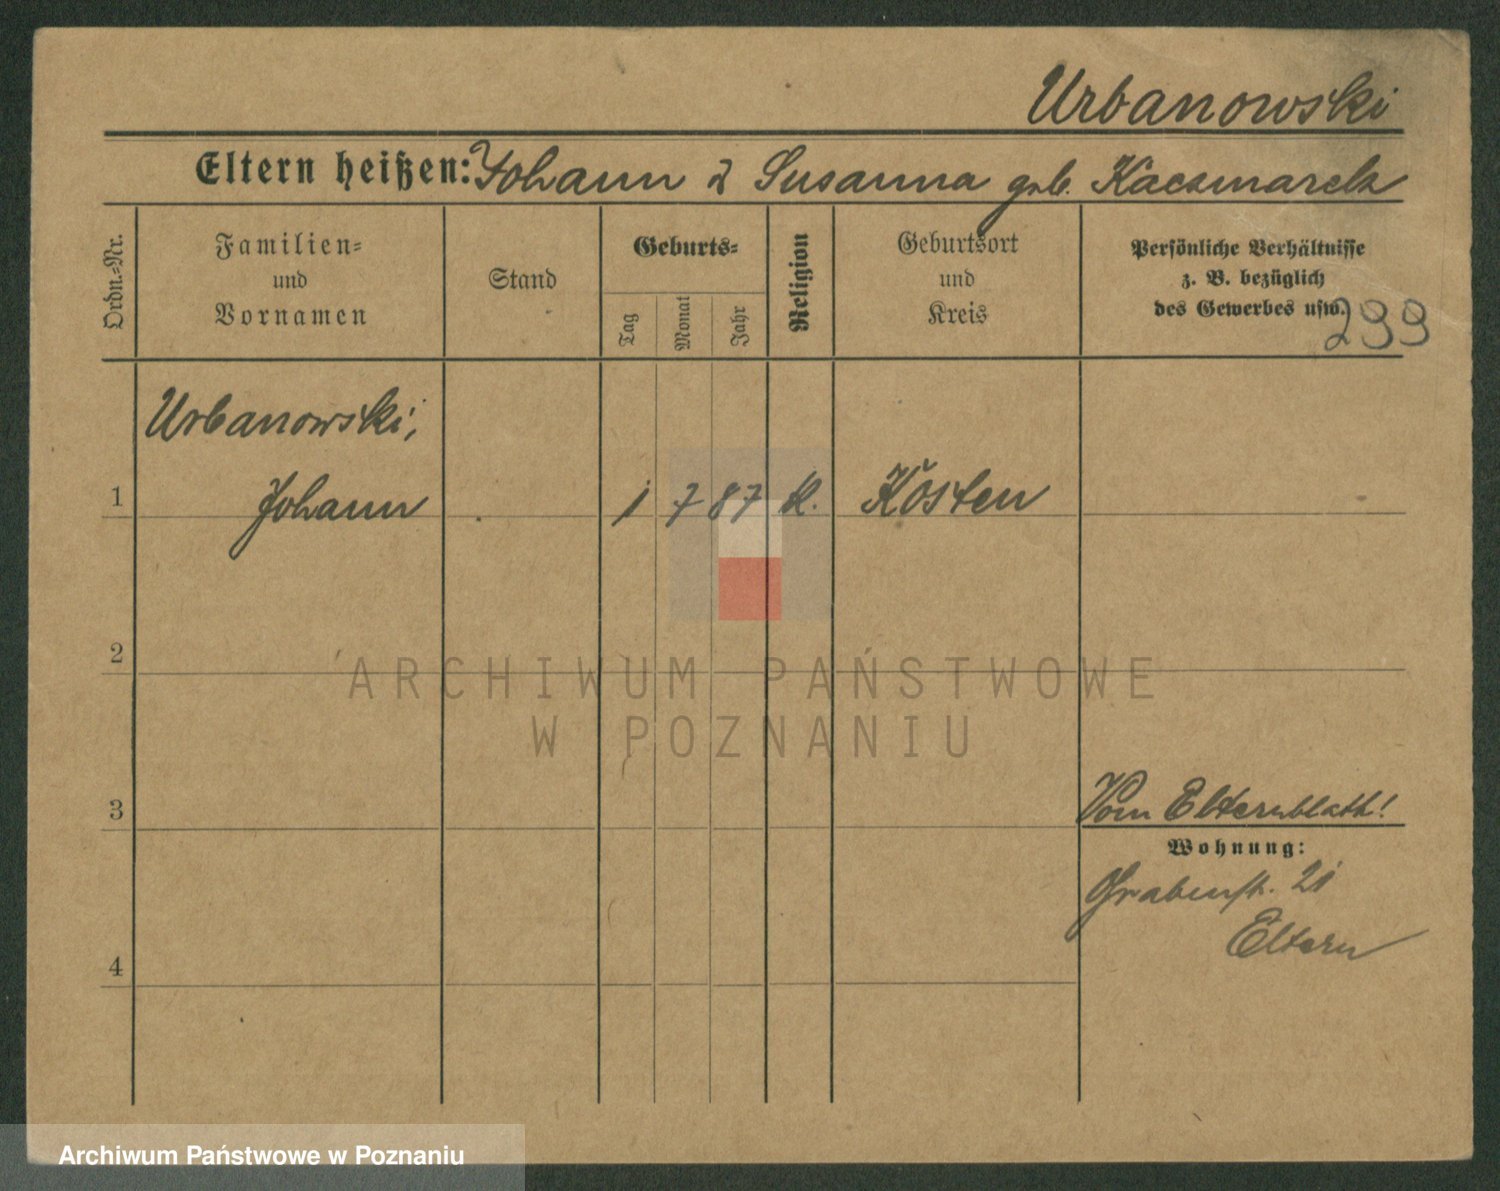 Urbanowski
Eltern heißen: Johann & Susanna geb. Kaczmarek
Ordn.-Nr.
Familien-
und
Vornamen
Stand
Geburts-
Tag
Monat
Jahr
Religion
Geburtsort
und
Kreis
Persönliche Verhältnisse
z. B. bezüglich
des Gewerbes usw.
299
Urbanowski,
1 Johann 1 7 87 k. Kosten
2
ARCHIWUM PAŃSTWOWE
W POZNANIU
3 Vom Elternblatt!
Wohnung:
Grabenstr. 21
Eltern
4
Archiwum Państwowe w Poznaniu